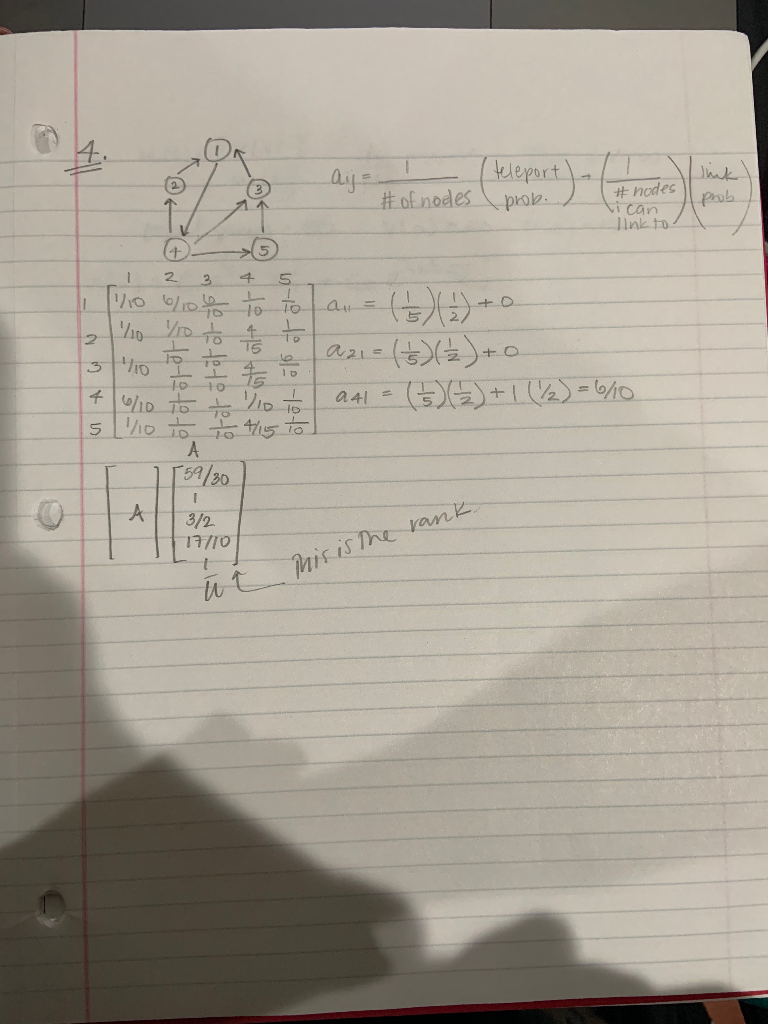 4.
1
2 3
4 5
aij = 1 / # of nodes (teleport prob.) + (1 / # nodes i can link to) (link prob)
1 2 3 4 5
1 1/10 6/10 6/10 1/10 1/10
2 1/10 1/10 1/10 4/15 1/10
3 1/10 1/10 1/10 4/15 6/10
4 6/10 1/10 1/10 1/10 1/10
5 1/10 1/10 1/10 4/15 1/10
A
a11 = (1/5)(1/2) + 0
a21 = (1/5)(1/2) + 0
a41 = (1/5)(1/2) + 1(1/2) = 6/10
[A] [59/30
1
3/2
17/10
1]
u
This is the rank